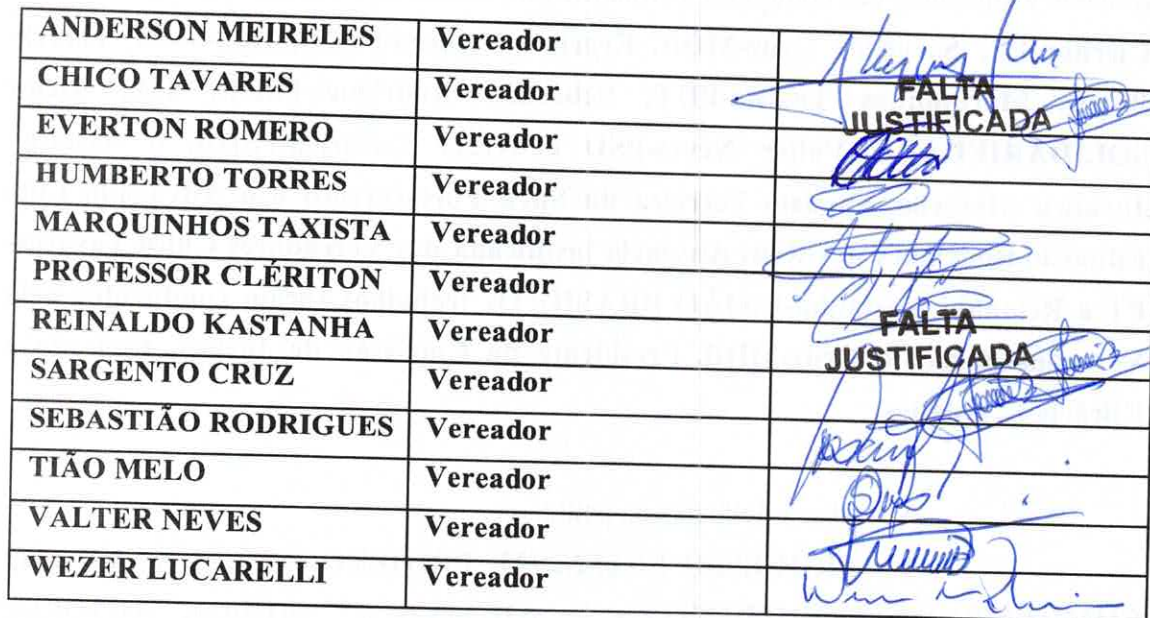 ANDERSON MEIRELES Vereador
CHICO TAVARES Vereador FALTA JUSTIFICADA
EVERTON ROMERO Vereador
HUMBERTO TORRES Vereador
MARQUINHOS TAXISTA Vereador
PROFESSOR CLÉRITON Vereador
REINALDO KASTANHA Vereador FALTA JUSTIFICADA
SARGENTO CRUZ Vereador
SEBASTIÃO RODRIGUES Vereador
TIÃO MELO Vereador
VALTER NEVES Vereador
WEZER LUCARELLI Vereador